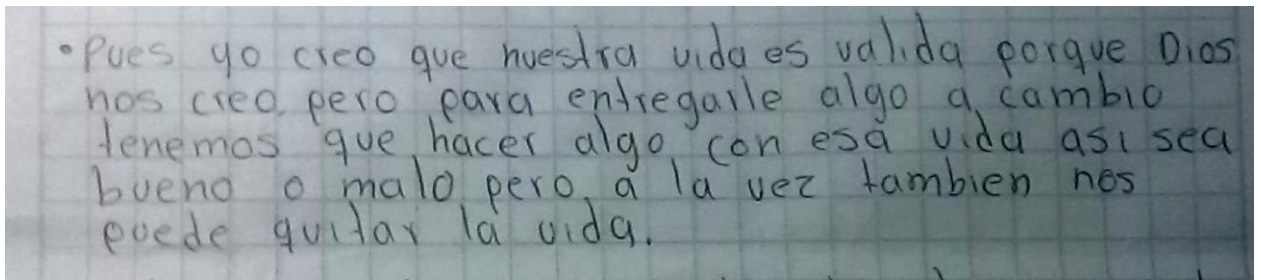 • Pues yo creo que nuestra vida es valida porque Dios
nos creo, pero para entregarle algo a cambio
tenemos que hacer algo con esa vida asi sea
bueno o malo, pero a la vez tambien nos
puede quitar la vida.